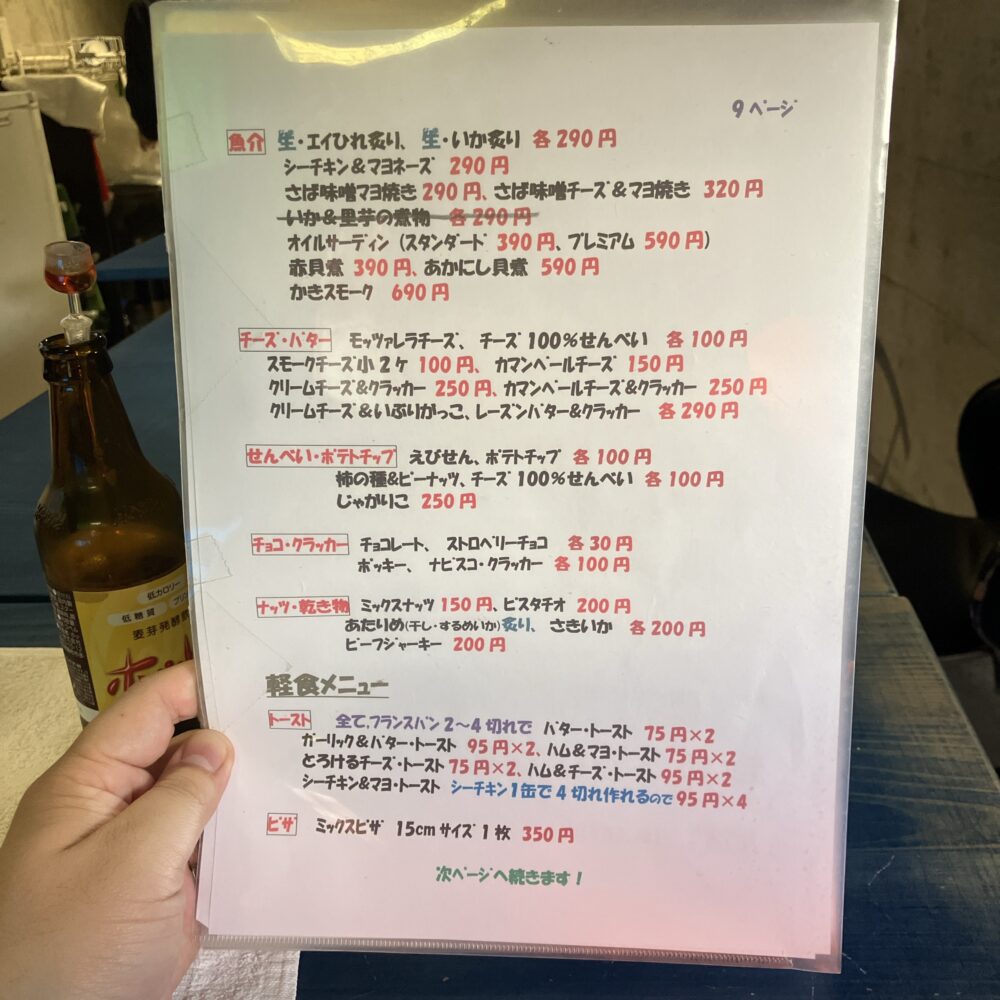 9ページ
魚介 生・エイひれ炙り、生・いか炙り 各290円
シーチキン＆マヨネーズ 290円
さば味噌マヨ焼き290円、さば味噌チーズ＆マヨ焼き 320円
いか＆里芋の煮物 各290円
オイルサーディン（スタンダード 390円、プレミアム 590円）
赤貝煮 390円、あかにし貝煮 590円
かきスモーク 690円
チーズ・バター モッツァレラチーズ、チーズ100％せんべい 各100円
スモークチーズ小2ケ 100円、カマンベールチーズ 150円
クリームチーズ&クラッカー 250円、カマンベールチーズ&クラッカー 250円
クリームチーズ＆いぶりがっこ、レーズンバター&クラッカー 各290円
せんべい・ポテトチップ えびせん、ポテトチップ 各100円
柿の種&ピーナッツ、チーズ100％せんべい 各100円
じゃがりこ 250円
チョコ・クラッカー チョコレート、ストロベリーチョコ 各30円
ポッキー、ナビスコ・クラッカー 各100円
ナッツ・乾き物 ミックスナッツ 150円、ピスタチオ 200円
あたりめ(干し・するめいか)炙り、さきいか 各200円
ビーフジャーキー 200円
軽食メニュー
トースト 全て、フランスパン2～4切れで バター・トースト 75円×2
ガーリック＆バター・トースト 95円×2、ハム＆マヨ・トースト75円×2
とろけるチーズ・トースト75円×2、ハム＆チーズ・トースト95円×2
シーチキン&マヨ・トースト シーチキン1缶で4切れ作れるので95円×4
ピザ ミックスピザ 15cmサイズ1枚 350円
次ページへ続きます！
低カロリー
低糖質
麦芽発酵
ホッ